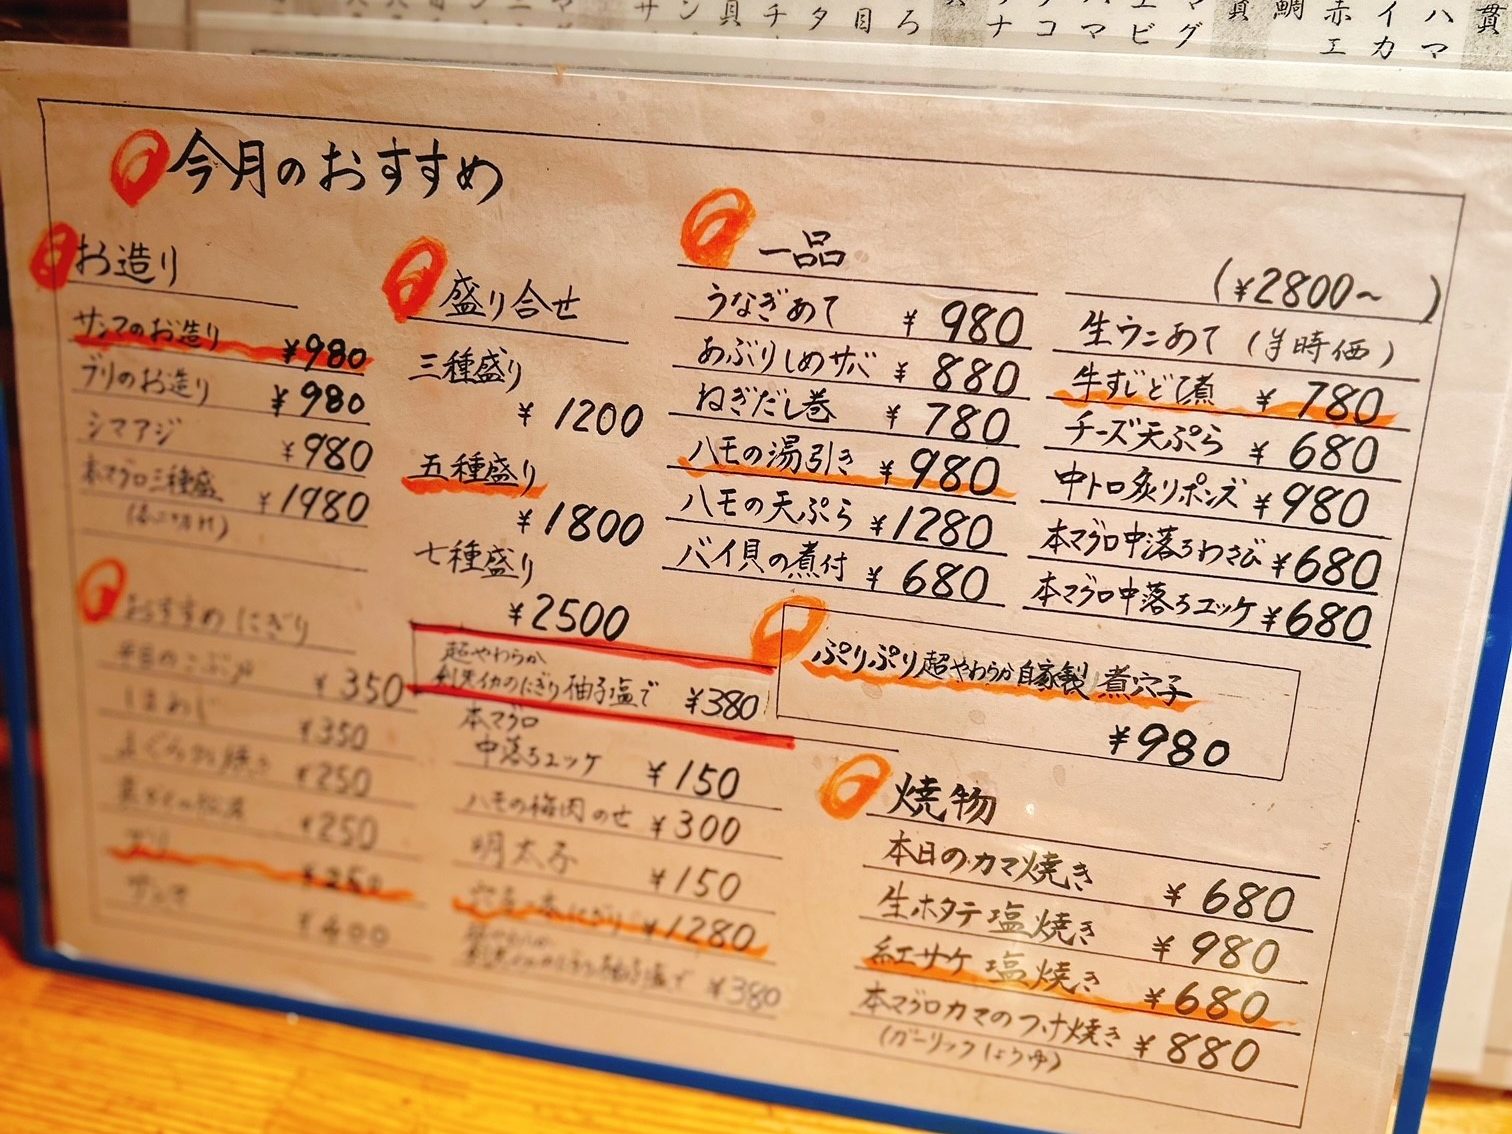 今月のおすすめ
お造り
サンマのお造り ¥980
ブリのお造り ¥980
シマアジ ¥980
本マグロ三種盛 ¥1980
盛り合せ
三種盛り
¥1200
五種盛り
¥1800
七種盛り
¥2500
一品
うなぎあて ¥980
あぶりしめサバ ¥880
ねぎだし巻 ¥780
ハモの湯引き ¥980
ハモの天ぷら ¥1280
バイ貝の煮付 ¥680
(¥2800~ )
生ウニあて (¥時価)
牛すじどて煮 ¥780
チーズ天ぷら ¥680
中トロ炙りポンズ ¥980
本マグロ中落ちわさび ¥680
本マグロ中落ちユッケ ¥680
ぷりぷり超やわらか自家製 煮穴子
¥980
おすすめにぎり
¥350
¥350
¥250
¥250
ブリ ¥250
サンマ ¥400
超やわらか
剣先イカのにぎり柚子塩で ¥380
本マグロ
中落ちユッケ ¥150
ハモの梅肉のせ ¥300
明太子 ¥150
穴子一本にぎり ¥1280
超やわらか
剣先イカのにぎり柚子塩で ¥380
焼物
本日のカマ焼き ¥680
生ホタテ塩焼き ¥980
紅サケ塩焼き ¥680
本マグロカマのつけ焼き ¥880
(ガーリックしょうゆ)